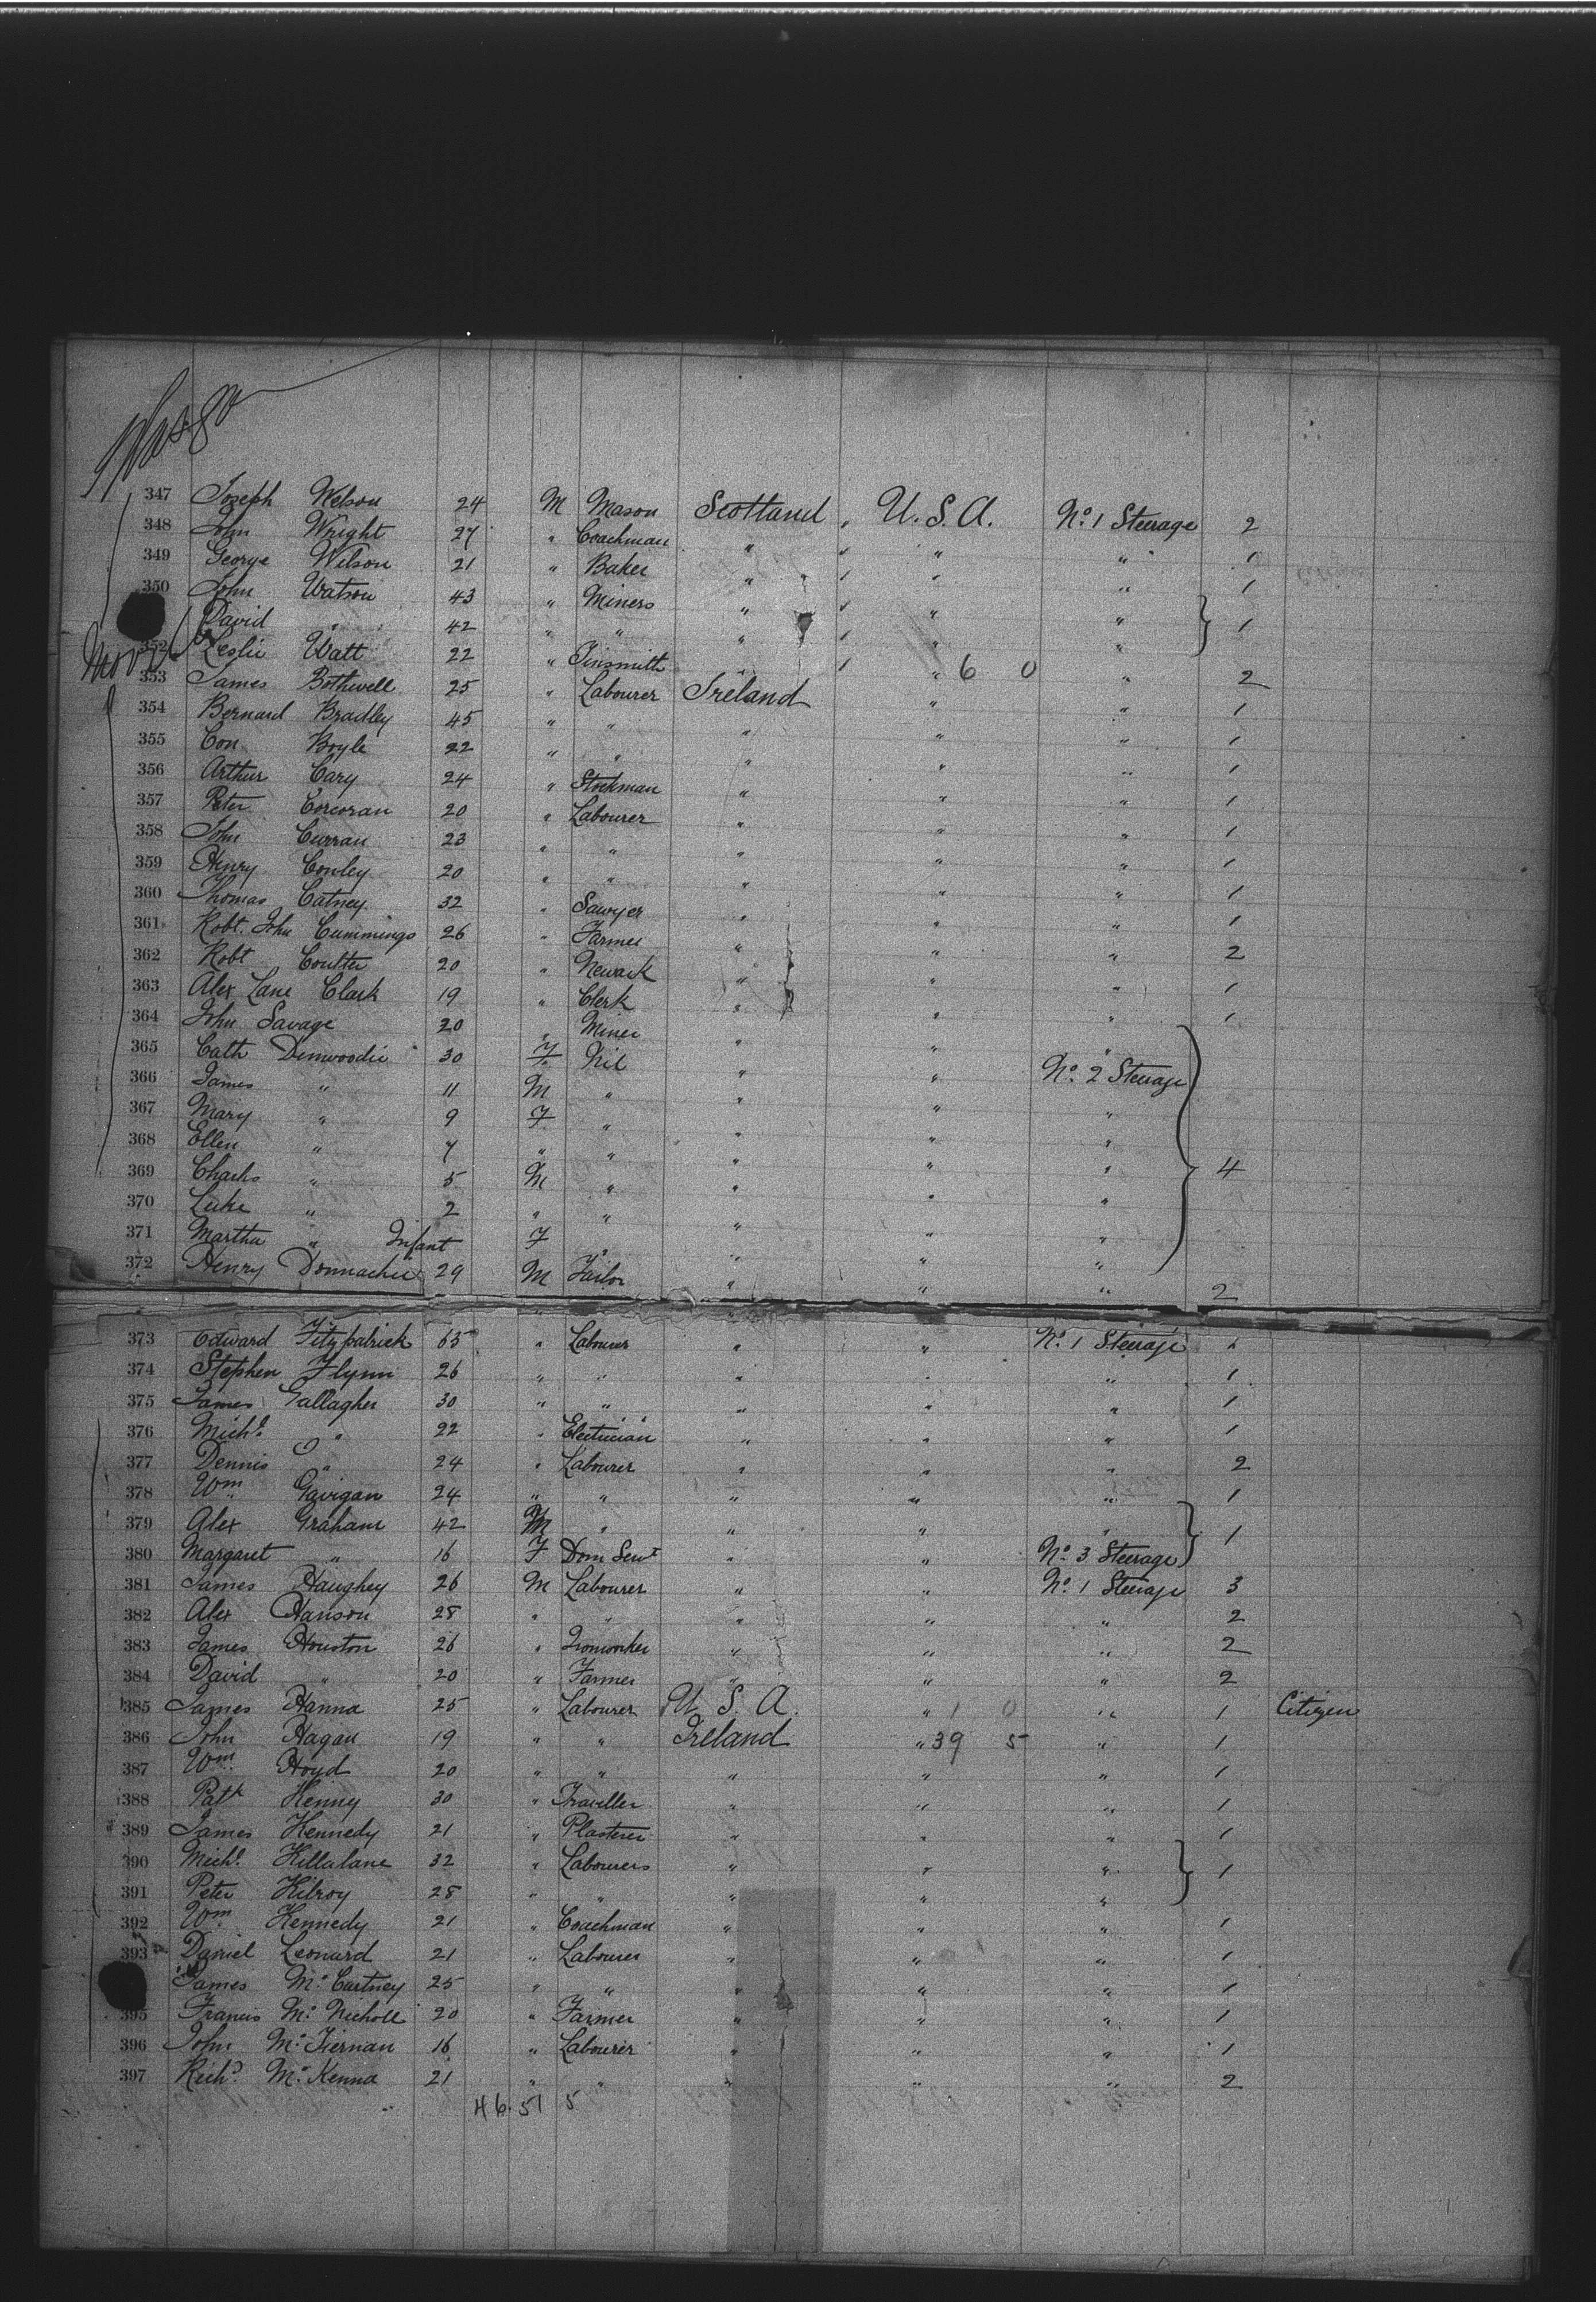 Glasgow
347 Joseph Welson 24 M Mason Scotland U.S.A. No. 1 Steerage 2
348 John Wright 27 " Coachman " " " 1
349 George Wilson 21 " Baker " " " 1
350 John Watson 43 " Miners " " " } 1
David " 42 " " " " "
Moville
352 Leslie Watt 22 " Tinsmith " 6 0 " 2
353 James Bothwell 25 " Labourer Ireland " " 1
354 Bernard Bradley 45 " " " " " 1
355 Con Boyle 22 " " " " " 1
356 Arthur Cary 24 " Stockman " " " 1
357 Peter Corcoran 20 " Labourer " " " 1
358 John Curran 23 " " " " " 1
359 Henry Conley 20 " " " " " 1
360 Thomas Catney 32 " Sawyer " " " 1
361 Robt. John Cummings 26 " Farmer " " " 2
362 Robt Coulter 20 " Newark " " " 1
363 Alex Lane Clark 19 " Clerk " " " 1
364 John Savage 20 " Miner " " "
365 Cath Dinwoodie 30 F Nil " " No. 2 Steerage } 4
366 James " 11 M " " " "
367 Mary " 9 F " " " "
368 Ellen " 7 " " " " "
369 Charles " 5 M " " " "
370 Luke " 2 " " " " "
371 Martha " Infant F " " " "
372 Henry Donnachie 29 M Tailor " " " 2
373 Edward Fitzpatrick 65 " Labourer " " No. 1 Steerage 1
374 Stephen Flynn 26 " " " " " 1
375 James Gallagher 30 " " " " " 1
376 Michl. " 22 " Electrician " " " 1
377 Dennis " 24 " Labourer " " " 2
378 Wm Gavigan 24 " " " " " 1
379 Alex Graham 42 M " " " " } 1
380 Margaret " 16 F Dom Servt " " No. 3 Steerage
381 James Haughey 26 M Labourer " " No. 1 Steerage 3
382 Alex Hanson 28 " " " " " 2
383 James Houston 26 " Ironworker " " " 2
384 David " 20 " Farmer " " " 2
385 James Hanna 25 " Labourer U S A. " 1 0 " 1 Citizen
386 John Hagan 19 " " Ireland " 39 5 " 1
387 Wm Hoyd 20 " " " " " 1
388 Patk Kenny 30 " Traveller " " " 1
389 James Kennedy 21 " Plasterer " " " 1
390 Michl. Killalane 32 " Labourers " " " } 1
391 Peter Kilroy 28 " " " " "
392 Wm Kennedy 21 " Coachman " " " 1
393 Daniel Leonard 21 " Labourer " " " 1
James Mc Cartney 25 " " " " " 1
395 Francis Mc Nicholl 20 " Farmer " " " 1
396 John Mc Tiernan 16 " Labourer " " " 1
397 Richd. Mc Kenna 21 " " " " " 2
46. 51 5